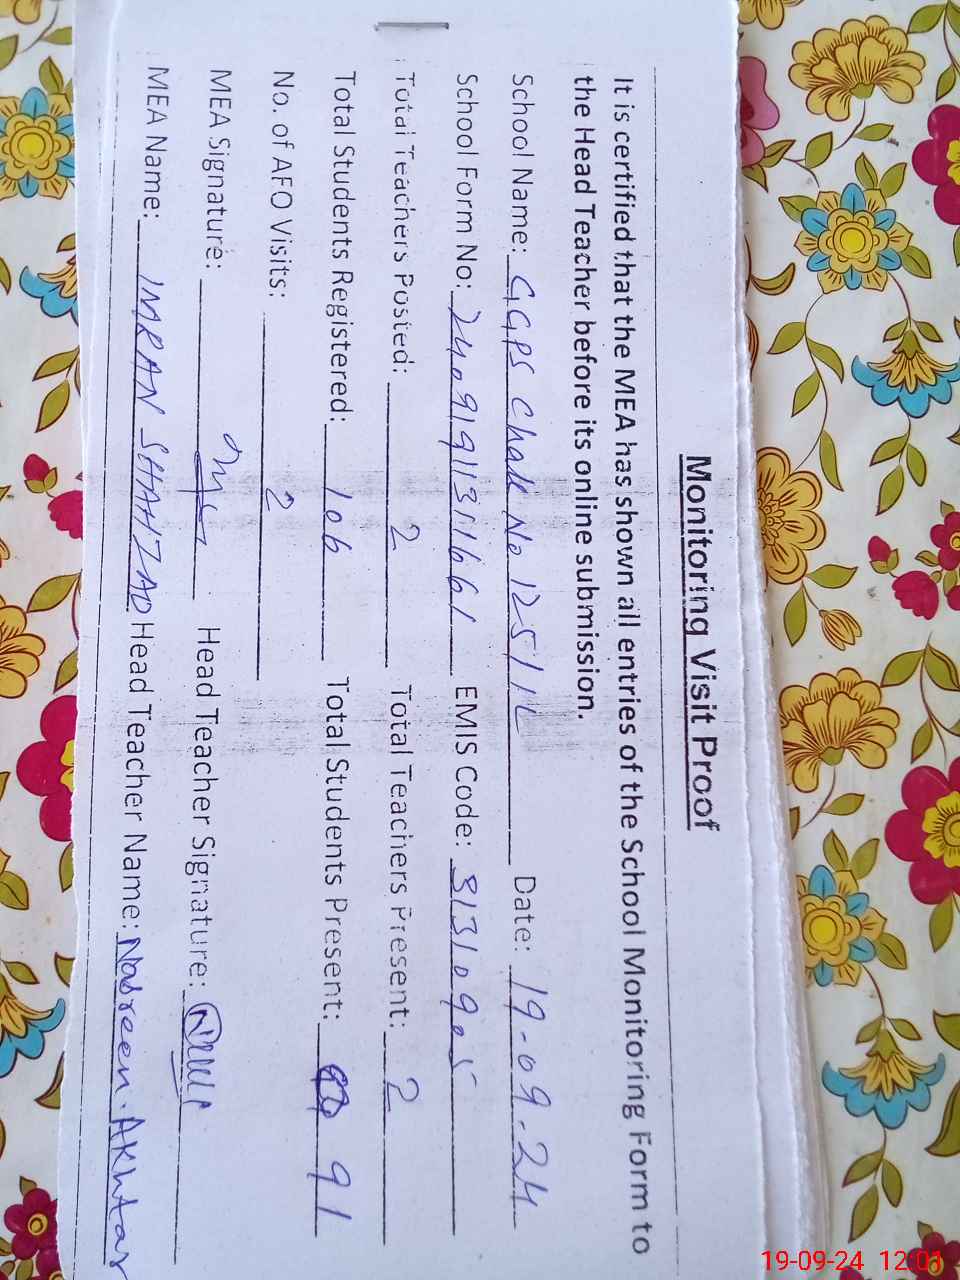 Monitoring Visit Proof
It is certified that the MEA has shown all entries of the School Monitoring Form to
the Head Teacher before its online submission.
School Name: GGPS Chak No 125/1L Date: 19-09-24
School Form No: 24091911311661 EMIS Code: 31310905
Total Teachers Posted: 2 Total Teachers Present: 2
Total Students Registered: 106 Total Students Present: 91
No. of AEO Visits: 2
MEA Signature: Head Teacher Signature:
MEA Name: IMRAN SHAHZAD Head Teacher Name: Nasreen Akhtar
19-09-24 12:01